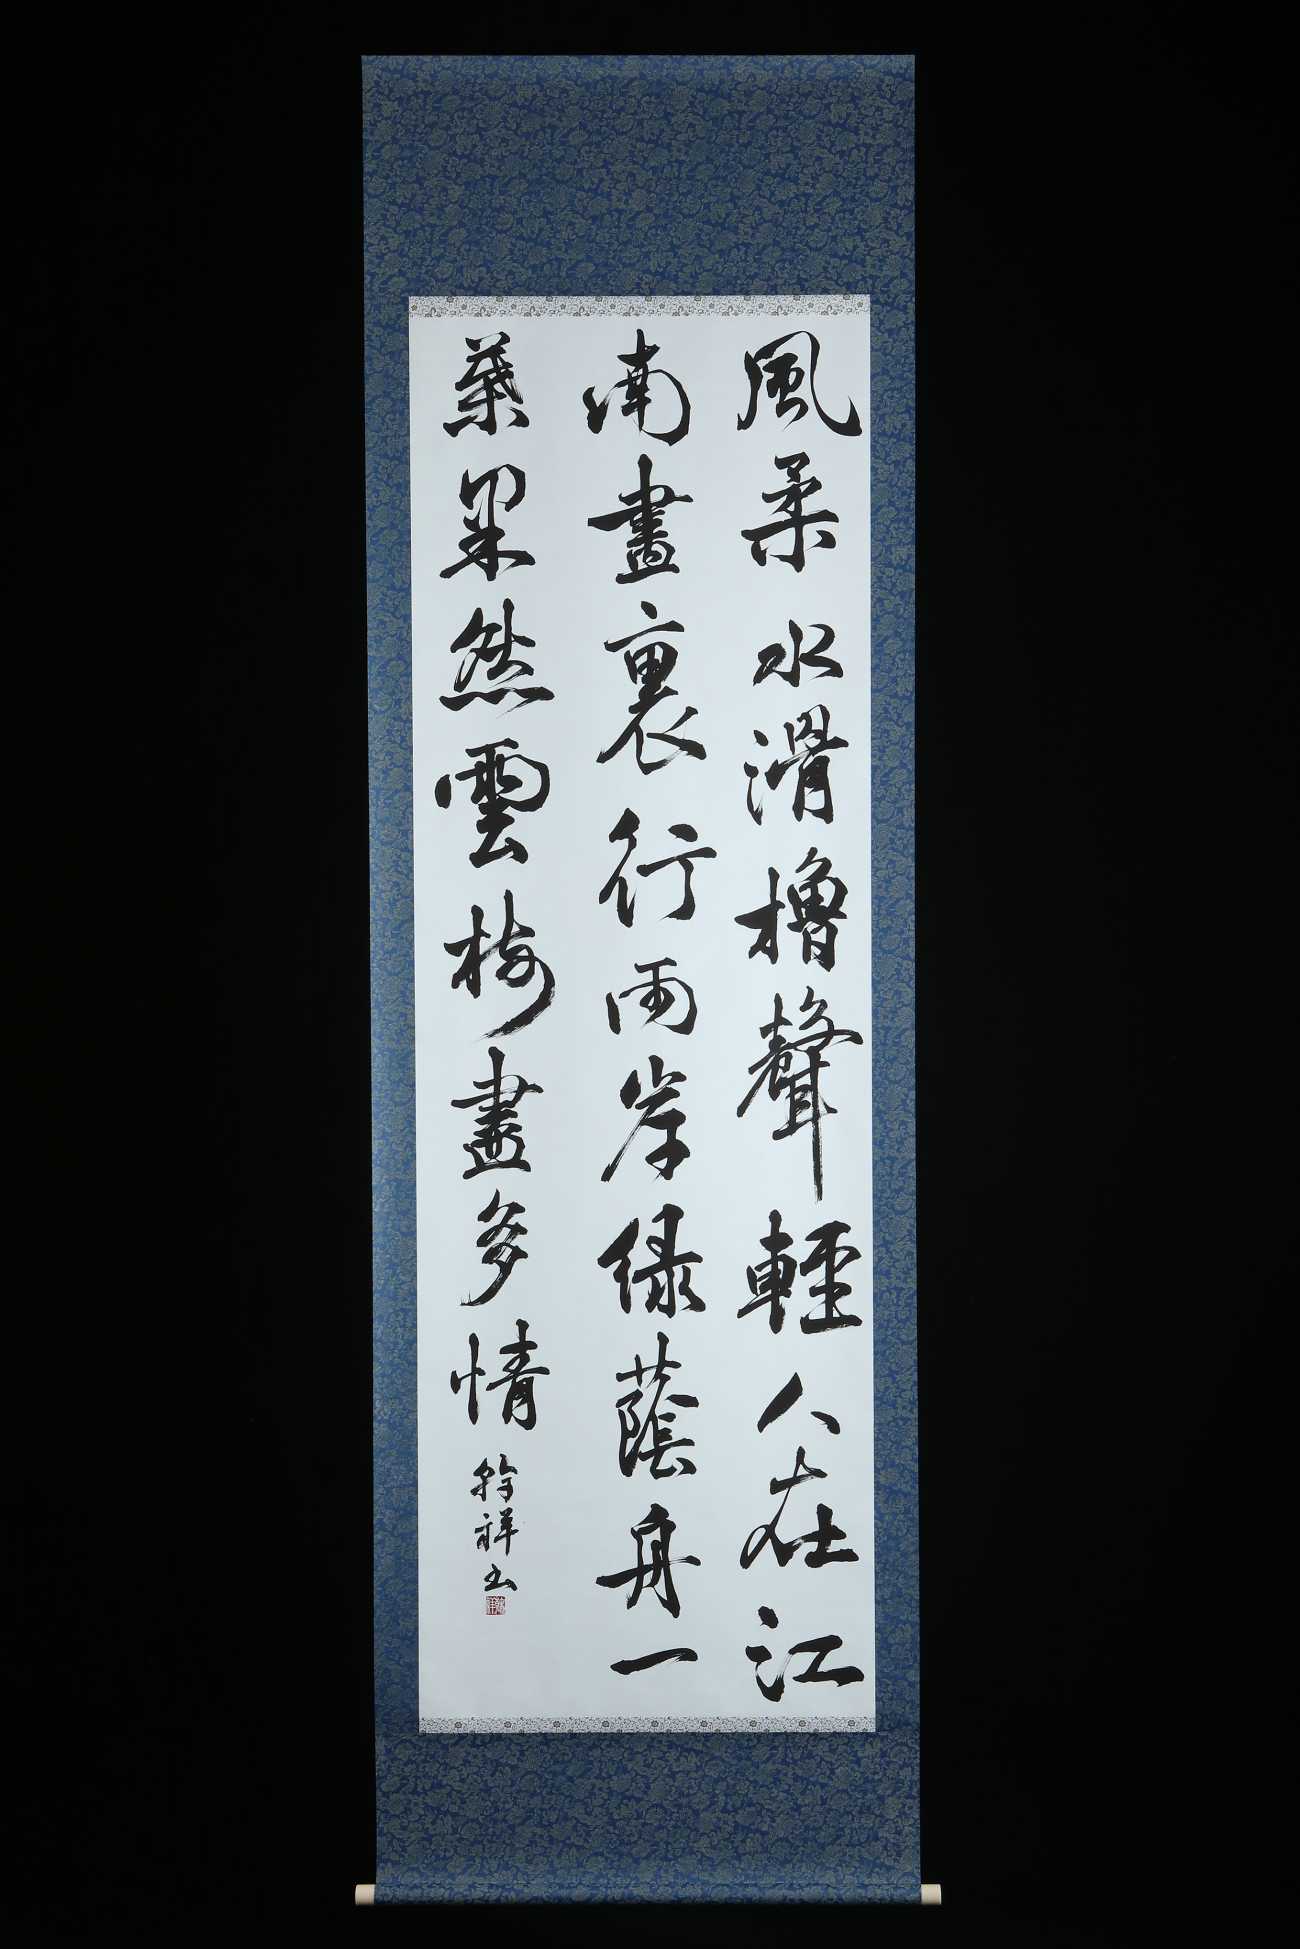 風柔水滑櫓聲輕人在江
南畫裏行両岸緑蔭舟一
葉果然雲樹盡多情
祥書